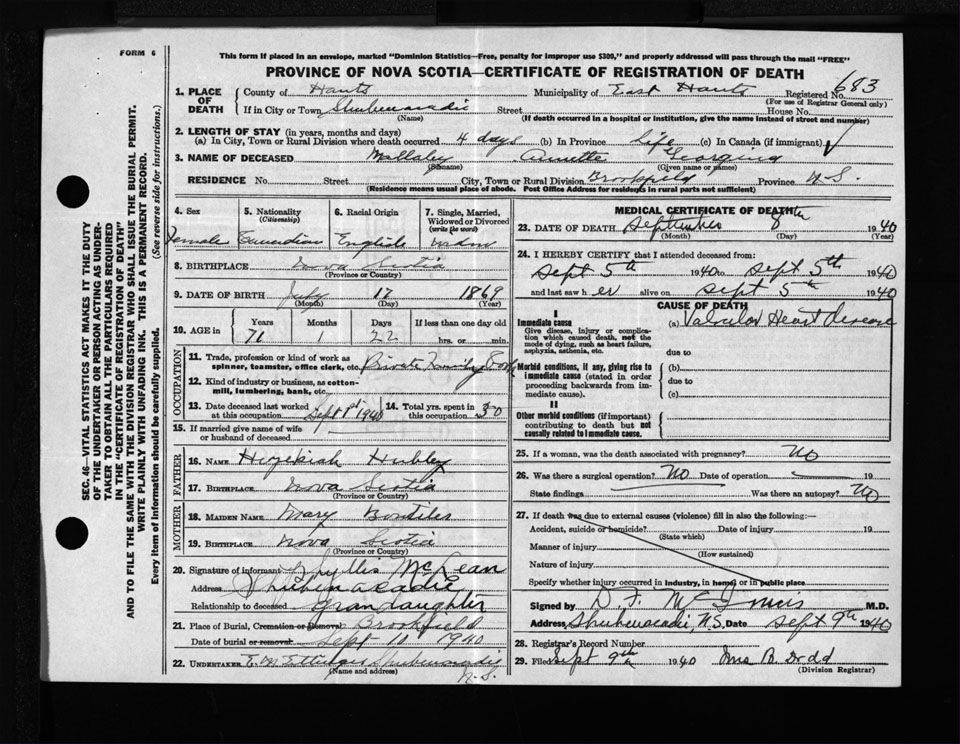 FORM 6
This form if placed in an envelope, marked "Dominion Statistics—Free, penalty for improper use $300," and properly addressed will pass through the mail "FREE"
PROVINCE OF NOVA SCOTIA—CERTIFICATE OF REGISTRATION OF DEATH
683
1. PLACE OF DEATH County of Hants Municipality of East Hants Registered No.
(For use of Registrar General only)
If in City or Town Shubenacadie Street House No.
(Name) (If death occurred in a hospital or institution, give the name instead of street and number)
2. LENGTH OF STAY (in years, months and days)
(a) In City, Town or Rural Division where death occurred 4 days (b) In Province Life (c) In Canada (if immigrant)
3. NAME OF DECEASED Annette Georgina
(Surname) (Given name or names)
RESIDENCE No. Street City, Town or Rural Division Brookfield Province N.S.
(Residence means usual place of abode. Post Office Address for residents in rural parts not sufficient)
4. Sex 5. Nationality (Citizenship) 6. Racial Origin 7. Single, Married, Widowed or Divorced (write the word)
Female Canadian English widow
8. BIRTHPLACE Nova Scotia
(Province or Country)
9. DATE OF BIRTH July 17 1869
(Month) (Day) (Year)
10. AGE in Years Months Days If less than one day old
71 1 22 hrs. or min.
OCCUPATION
11. Trade, profession or kind of work as spinner, teamster, office clerk, etc. Private Family
12. Kind of industry or business, as cotton-mill, lumbering, bank, etc.
13. Date deceased last worked at this occupation Sept 1st 1940 14. Total yrs. spent in this occupation 30
15. If married give name of wife or husband of deceased
FATHER
16. Name Hezekiah Hubley
17. Birthplace Nova Scotia
(Province or Country)
MOTHER
18. Maiden Name Mary
19. Birthplace Nova Scotia
(Province or Country)
20. Signature of informant Phyllis McLean
Address Shubenacadie
Relationship to deceased Grandaughter
21. Place of Burial, Cremation or Removal Brookfield
Date of burial or removal Sept 11 1940
22. UNDERTAKER Shubenacadie
(Name and address) N.S.
MEDICAL CERTIFICATE OF DEATH
23. DATE OF DEATH September 8th 1940
(Month) (Day) (Year)
24. I HEREBY CERTIFY that I attended deceased from:
Sept 5th 1940 to Sept 5th 1940
and last saw h er alive on Sept 5th 1940
CAUSE OF DEATH
I
Immediate cause (a) Valvular Heart Disease
Give disease, injury or complication which caused death, not the mode of dying, such as heart failure, asphyxia, asthenia, etc.
due to
Morbid conditions, if any, giving rise to immediate cause (stated in order proceeding backwards from immediate cause).
(b)
due to
(c)
II
Other morbid conditions (if important) contributing to death but not causally related to immediate cause.
25. If a woman, was the death associated with pregnancy? No
26. Was there a surgical operation? No Date of operation 19
State findings Was there an autopsy? No
27. If death was due to external causes (violence) fill in also the following:—
Accident, suicide or homicide? Date of injury 19
(State which)
Manner of injury
(How sustained)
Nature of injury
Specify whether injury occurred in industry, in home, or in public place
Signed by D F McInnis M.D.
Address Shubenacadie, N.S. Date Sept 9th 1940
28. Registrar's Record Number
29. Filed Sept 9th 1940 Mrs B. Dodd
(Division Registrar)
SEC. 46—VITAL STATISTICS ACT MAKES IT THE DUTY
OF THE UNDERTAKER OR PERSON ACTING AS UNDER-
TAKER TO OBTAIN ALL THE PARTICULARS REQUIRED
IN THE "CERTIFICATE OF REGISTRATION OF DEATH"
AND TO FILE THE SAME WITH THE DIVISION REGISTRAR WHO SHALL ISSUE THE BURIAL PERMIT.
WRITE PLAINLY WITH UNFADING INK. THIS IS A PERMANENT RECORD.
Every item of information should be carefully supplied. (See reverse side for instructions.)